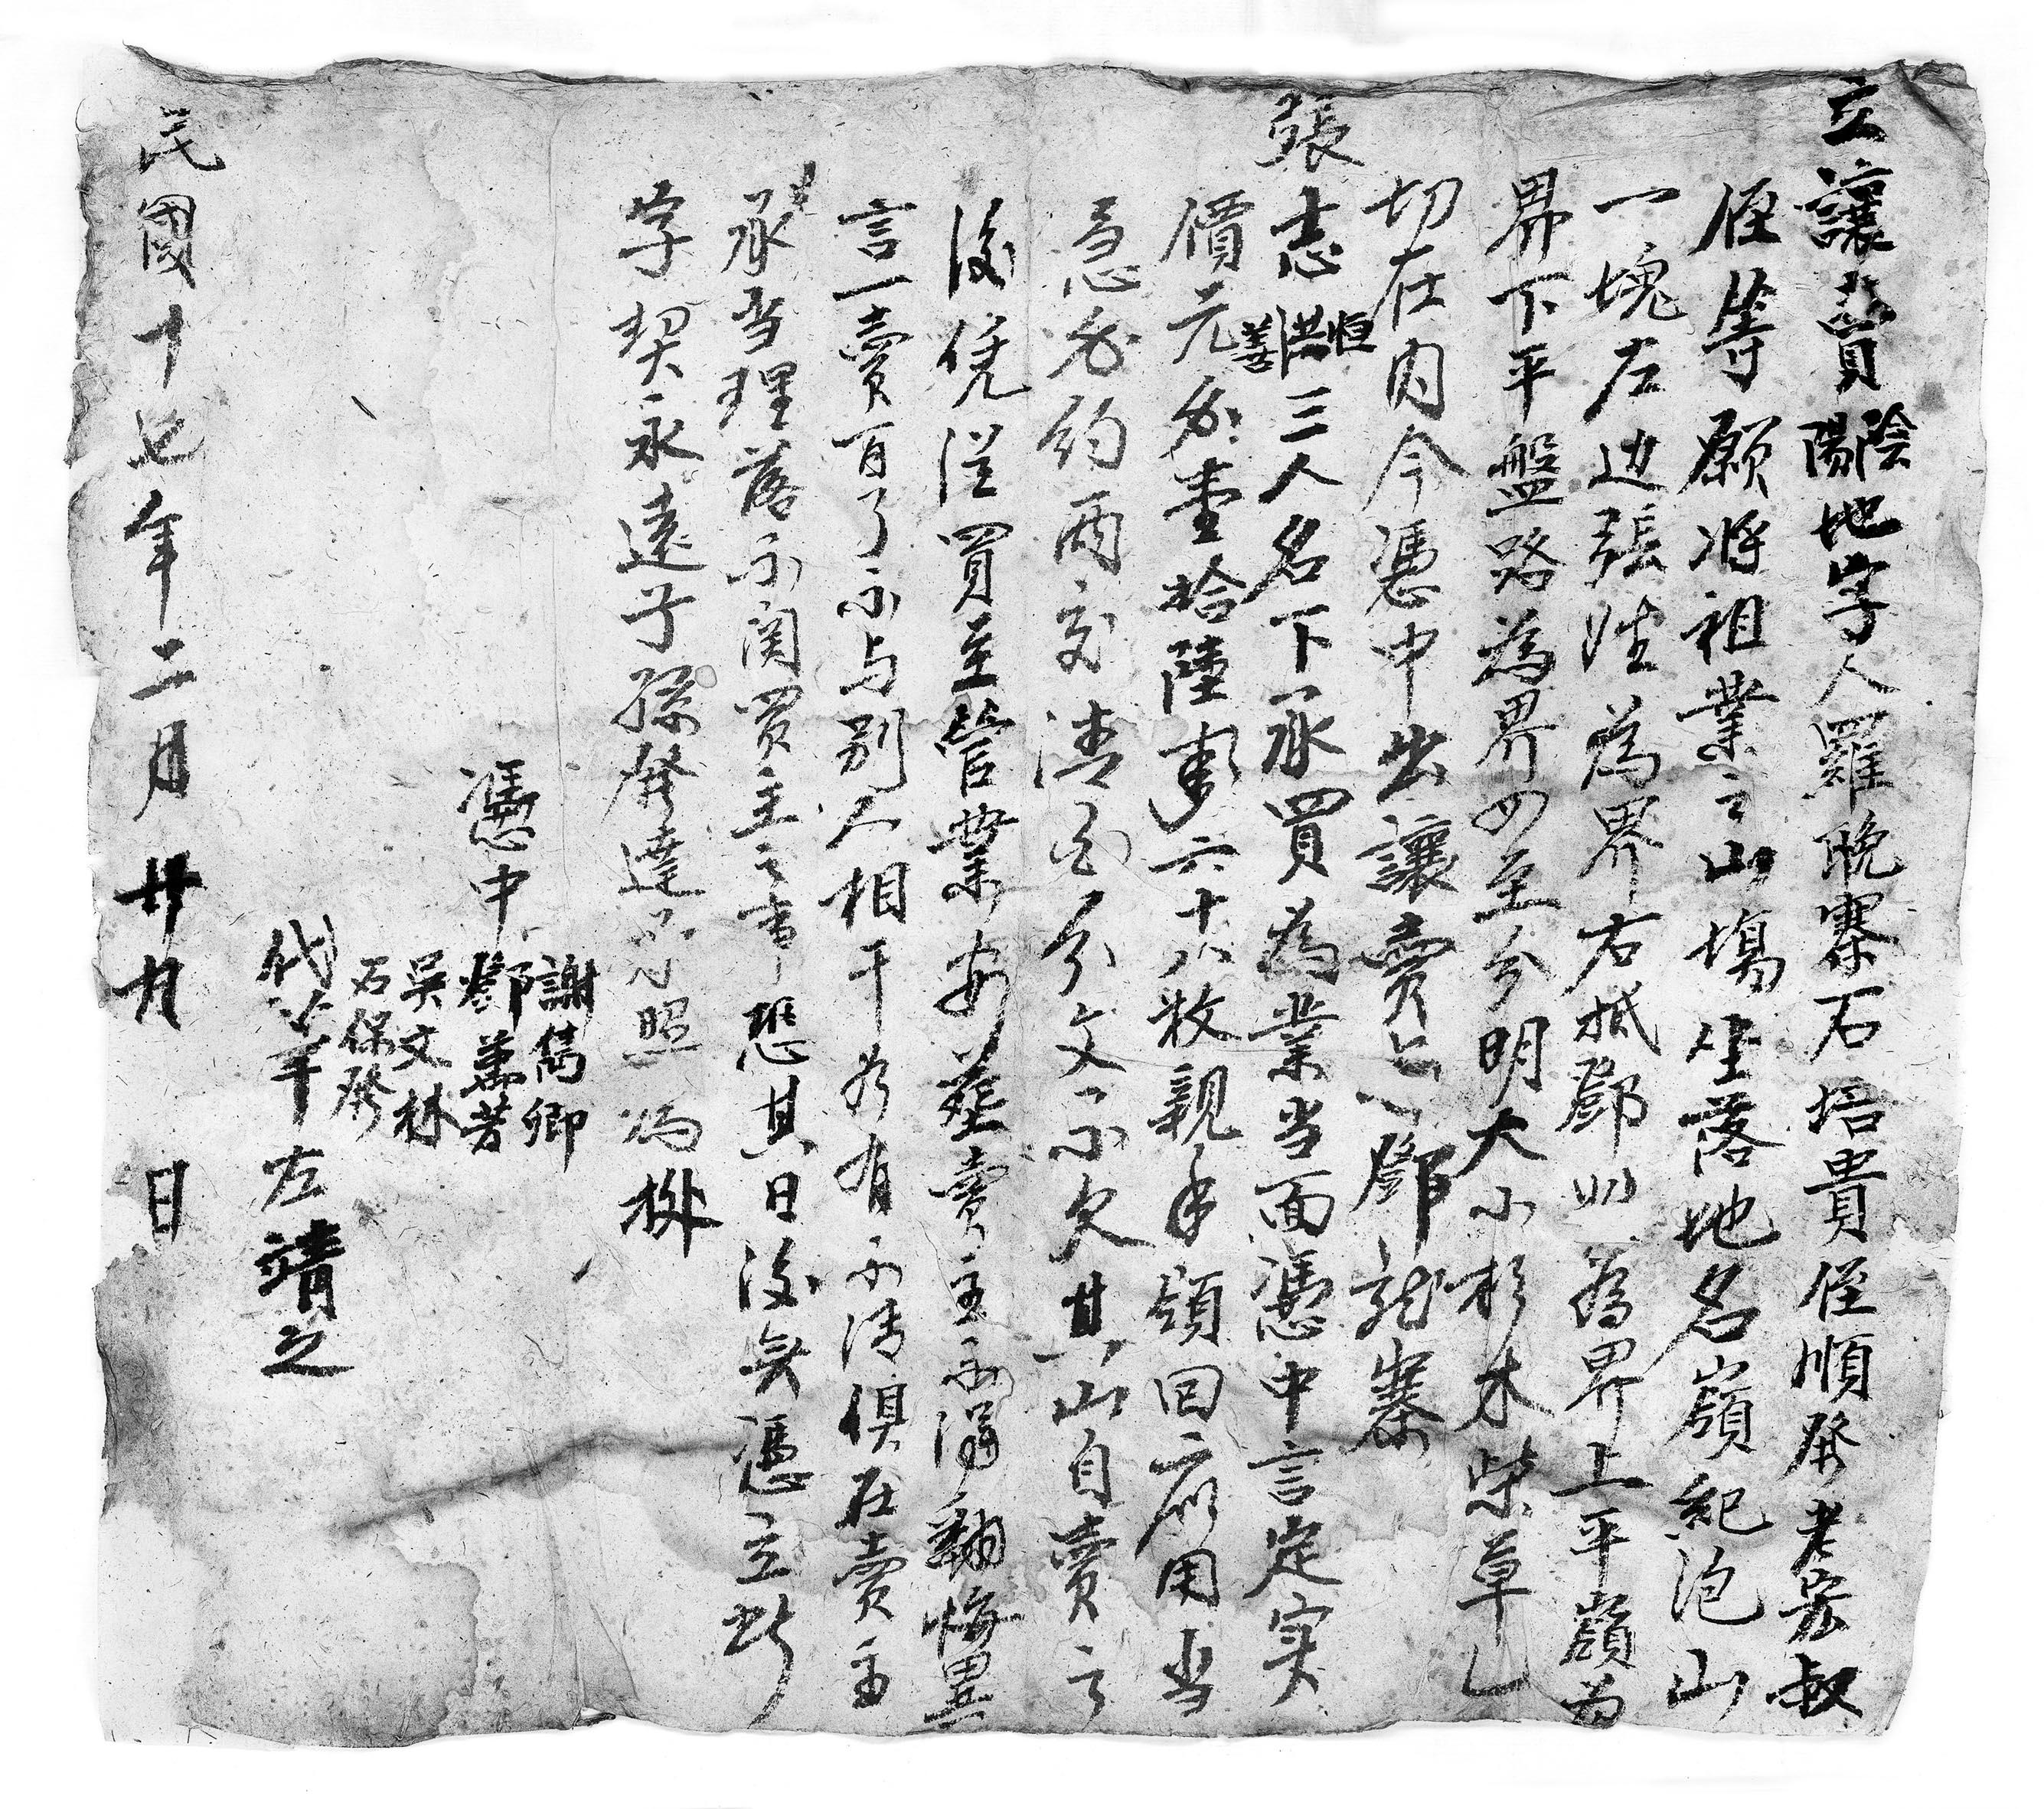 立讓賣陰陽地字人羅晚寨石培貴侄順發老寨叔
侄等願將祖業之山塲坐落地名嶺紀泡山
一塊左边張姓為界右抵鄧姓為界上平嶺為
界下平盤路為界四至分明大小杉木柴草乚
切在内今憑中出讓賣与鄧龍寨
張志恒洪善三人名下承買為業当面憑中言定实
價元錢壹拾陸千六十八枚親手領回應用当
急另約兩交清白分文不欠其山自賣之
後凭從買主管業安葬賣主不得翻悔異
言一賣百了不与别人相干若有不清俱在賣主
承当理落不関買主之事恐其日後無憑立此
字契永遠子孫發達為照
謝雋卿
憑中鄧萬芳
吳文林
石保發
代筆左靖之
民國十七年二月廿九日